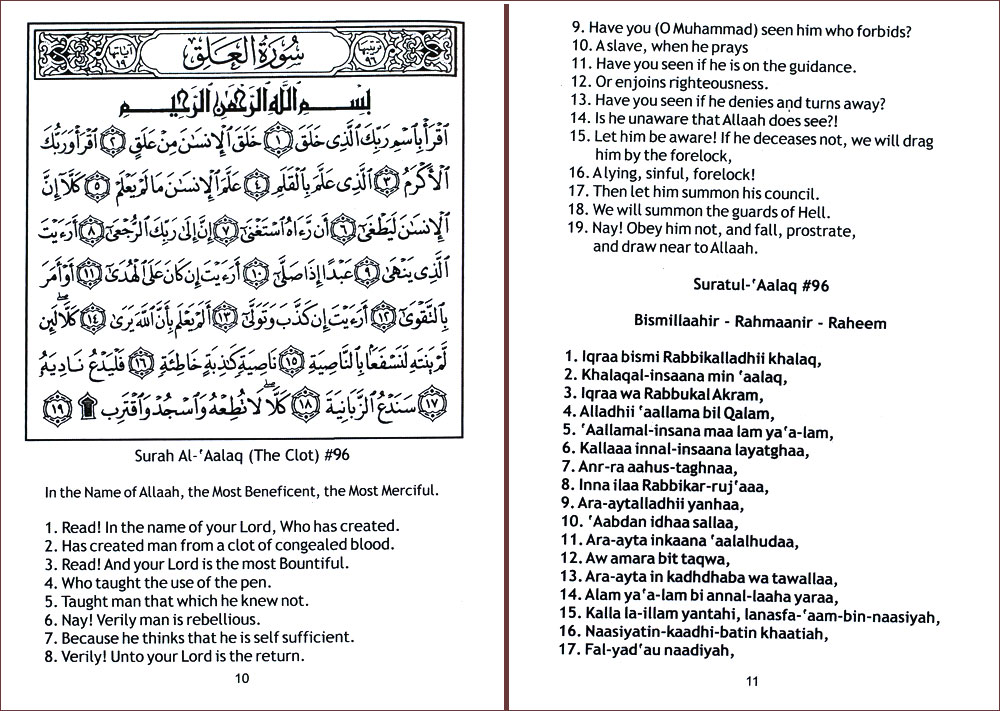 آياتها ١٩
سُورَةُ الْعَلَقِ
ترتيبها ٩٦
بِسْمِ اللَّهِ الرَّحْمَٰنِ الرَّحِيمِ
ٱقْرَأْ بِٱسْمِ رَبِّكَ ٱلَّذِى خَلَقَ ١ خَلَقَ ٱلْإِنسَٰنَ مِنْ عَلَقٍ ٢ ٱقْرَأْ وَرَبُّكَ
ٱلْأَكْرَمُ ٣ ٱلَّذِى عَلَّمَ بِٱلْقَلَمِ ٤ عَلَّمَ ٱلْإِنسَٰنَ مَا لَمْ يَعْلَمْ ٥ كَلَّآ إِنَّ
ٱلْإِنسَٰنَ لَيَطْغَىٰٓ ٦ أَن رَّءَاهُ ٱسْتَغْنَىٰٓ ٧ إِنَّ إِلَىٰ رَبِّكَ ٱلرُّجْعَىٰٓ ٨ أَرَءَيْتَ
ٱلَّذِى يَنْهَىٰ ٩ عَبْدًا إِذَا صَلَّىٰٓ ١٠ أَرَءَيْتَ إِن كَانَ عَلَى ٱلْهُدَىٰٓ ١١ أَوْ أَمَرَ
بِٱلتَّقْوَىٰٓ ١٢ أَرَءَيْتَ إِن كَذَّبَ وَتَوَلَّىٰٓ ١٣ أَلَمْ يَعْلَم بِأَنَّ ٱللَّهَ يَرَىٰ ١٤ كَلَّا لَئِن
لَّمْ يَنتَهِ لَنَسْفَعًۢا بِٱلنَّاصِيَةِ ١٥ نَاصِيَةٍ كَٰذِبَةٍ خَاطِئَةٍ ١٦ فَلْيَدْعُ نَادِيَهُۥ
١٧ سَنَدْعُ ٱلزَّبَانِيَةَ ١٨ كَلَّا لَا تُطِعْهُ وَٱسْجُدْ وَٱقْتَرِب ۩ ١٩
Surah Al-‘Aalaq (The Clot) #96
In the Name of Allaah, the Most Beneficent, the Most Merciful.
1. Read! In the name of your Lord, Who has created.
2. Has created man from a clot of congealed blood.
3. Read! And your Lord is the most Bountiful.
4. Who taught the use of the pen.
5. Taught man that which he knew not.
6. Nay! Verily man is rebellious.
7. Because he thinks that he is self sufficient.
8. Verily! Unto your Lord is the return.
10
9. Have you (O Muhammad) seen him who forbids?
10. A slave, when he prays
11. Have you seen if he is on the guidance.
12. Or enjoins righteousness.
13. Have you seen if he denies and turns away?
14. Is he unaware that Allaah does see?!
15. Let him be aware! If he deceases not, we will drag
him by the forelock,
16. A lying, sinful, forelock!
17. Then let him summon his council.
18. We will summon the guards of Hell.
19. Nay! Obey him not, and fall, prostrate,
and draw near to Allaah.
Suratul-‘Aalaq #96
Bismillaahir - Rahmaanir - Raheem
1. Iqraa bismi Rabbikalladhii khalaq,
2. Khalaqal-insaana min ‘aalaq,
3. Iqraa wa Rabbukal Akram,
4. Alladhii ‘aallama bil Qalam,
5. ‘Aallamal-insana maa lam ya‘a-lam,
6. Kallaaa innal-insaana layatghaa,
7. Anr-ra aahus-taghnaa,
8. Inna ilaa Rabbikar-ruj‘aaa,
9. Ara-aytalladhii yanhaa,
10. ‘Aabdan idhaa sallaa,
11. Ara-ayta inkaana ‘aalalhudaa,
12. Aw amara bit taqwa,
13. Ara-ayta in kadhdhaba wa tawallaa,
14. Alam ya‘a-lam bi annal-laaha yaraa,
15. Kalla la-illam yantahi, lanasfa-‘aam-bin-naasiyah,
16. Naasiyatin-kaadhi-batin khaatiah,
17. Fal-yad‘au naadiyah,
11